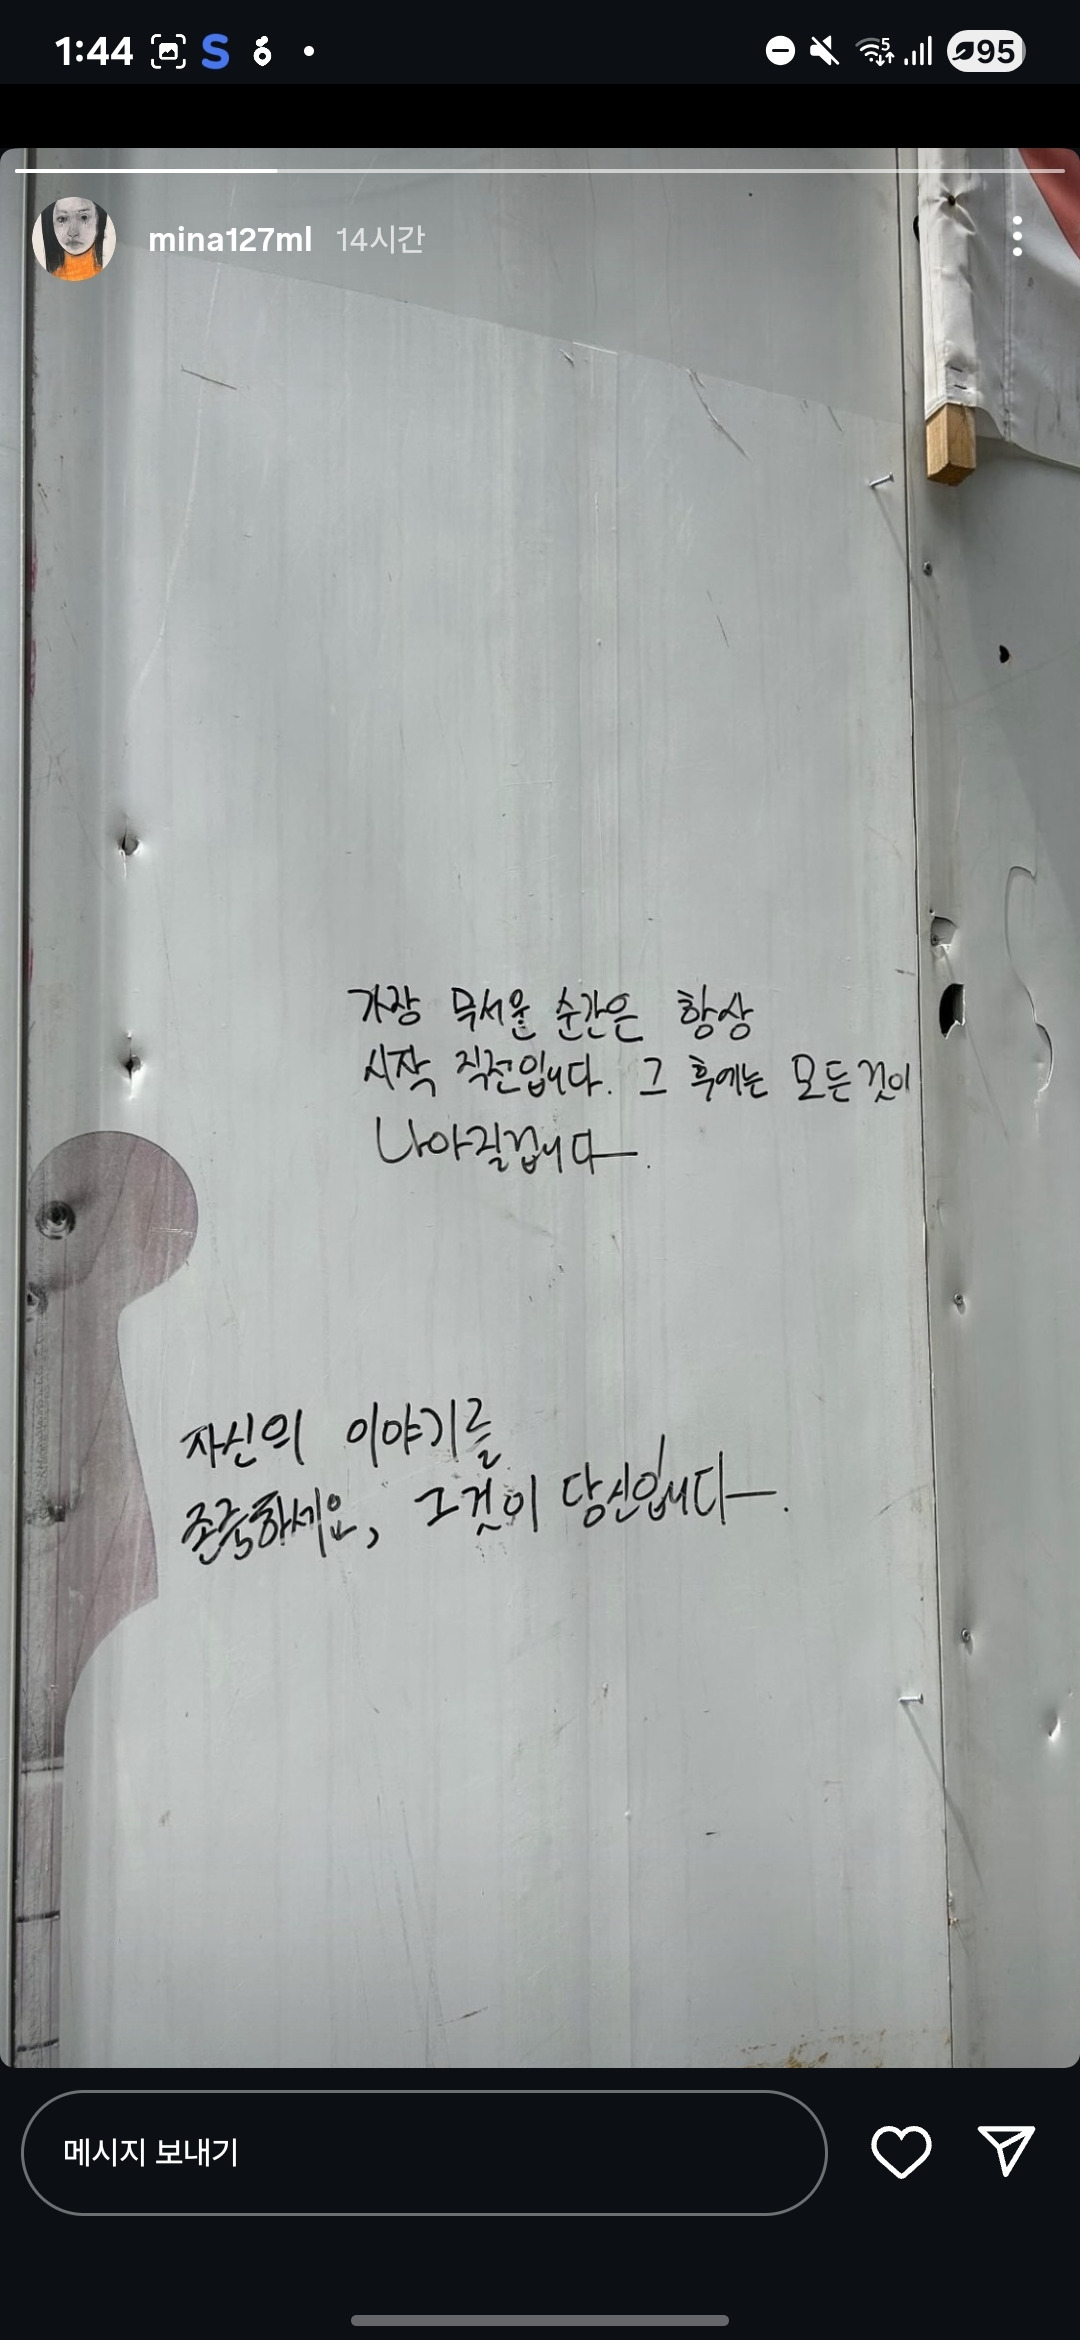 1:44
95
mina127ml 14시간
가장 무서운 순간은 항상
시작 직전입니다. 그 후에는 모든것이
나아질겁니다.
자신의 이야기를
존중하세요, 그것이 당신입니다.
메시지 보내기